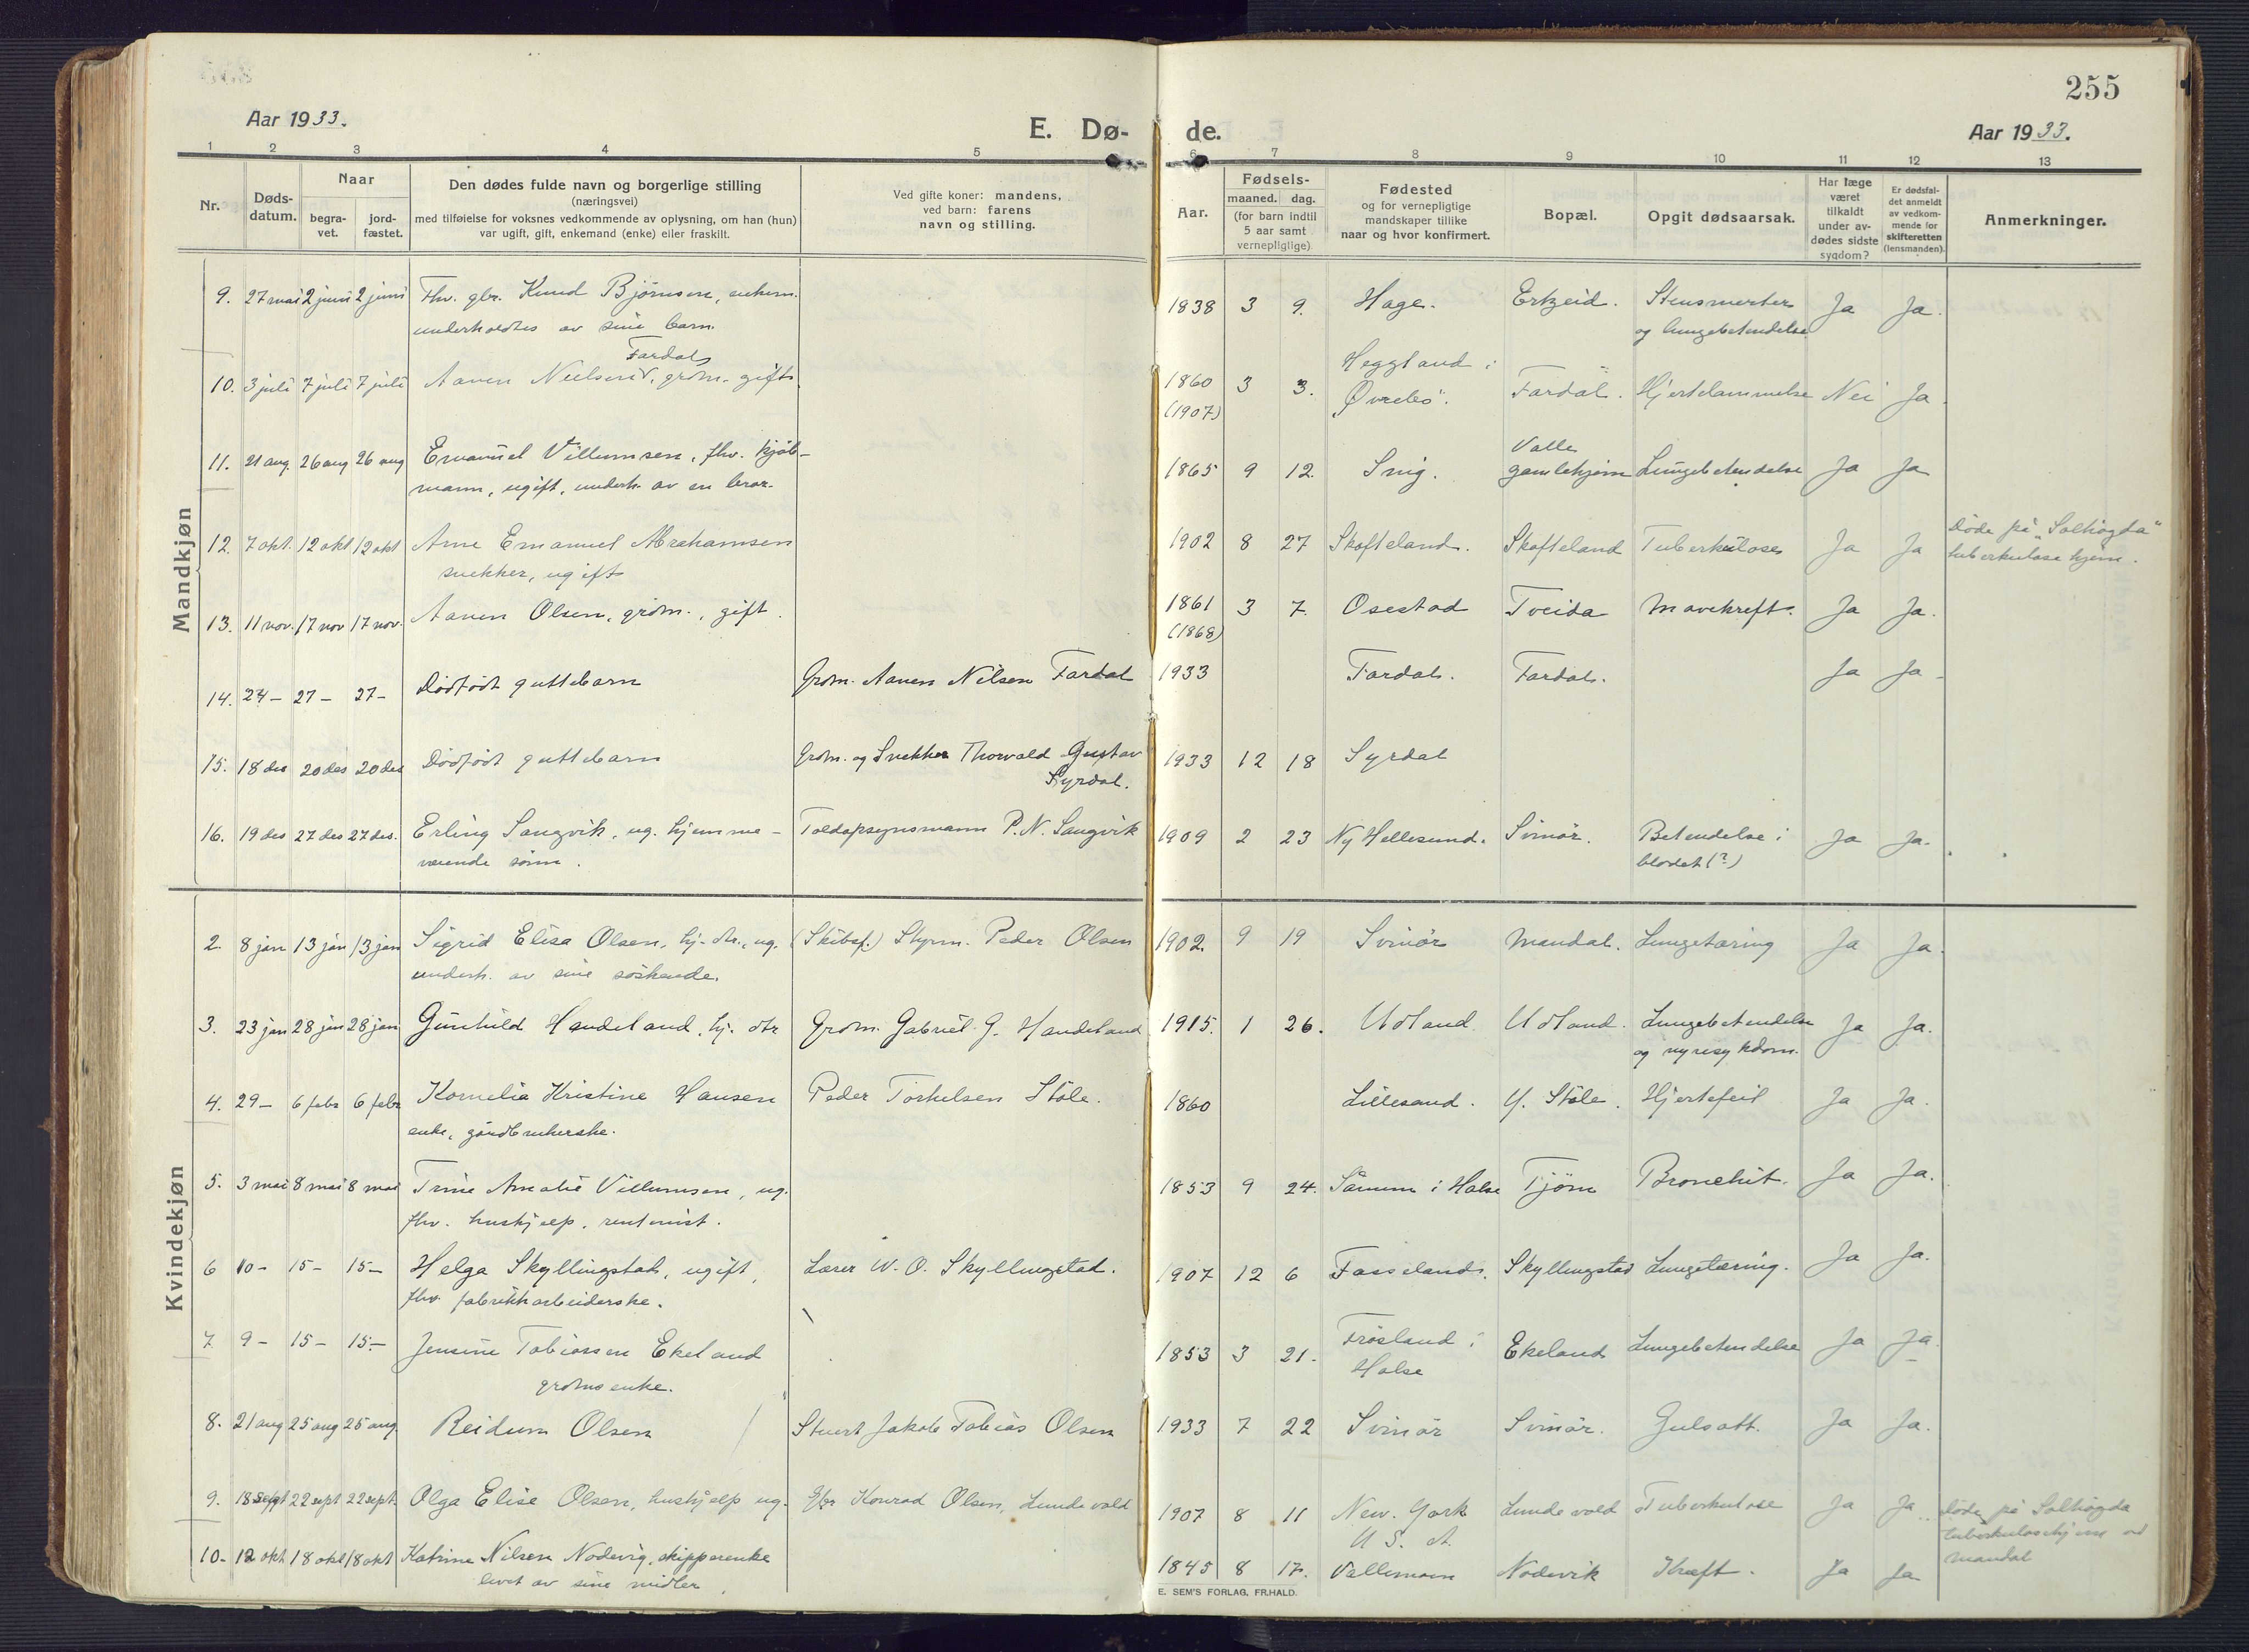 255
Aar 1933.
E. Dø- de.
Aar 1933.
1 2 3 4 5 6 7 8 9 10 11 12 13
Nr.
Døds-
datum.
Naar
begra-
vet.
jord-
fæstet.
Den dødes fulde navn og borgerlige stilling
(næringsvei)
med tilføielse for voksnes vedkommende av oplysning, om han (hun)
var ugift, gift, enkemand (enke) eller fraskilt.
Ved gifte koner: mandens,
ved barn: farens
navn og stilling.
Aar.
Fødsels-
maaned. dag.
(for barn indtil
5 aar samt
vernepligtige)
Fødested
og for vernepligtige
mandskaper tillike
naar og hvor konfirmert.
Bopæl.
Opgit dødsaarsak.
Har læge
været
tilkaldt
under av-
dødes sidste
sygdom?
Er dødsfal-
det anmeldt
av vedkom-
mende for
skifteretten
(lensmanden).
Anmerkninger.
Mandkjøn
9. 27 mai 2 juni 2 juni Fhv. gbr. Knud Bjørnsen, enkem. 1838 3 9. Hage. Ertzeid. Stensmerter Ja Ja.
underholdtes av sine barn. og lungebetendelse
Fardal
10. 3 juli 7 juli 7 juli Aanen Nielsen, grdm. gift. 1860 3 3. Heggland i Fardal. Hjertelammelse Nei Ja.
(1907) Øvrebø.
11. 21 aug. 26 aug 26 aug Emanuel Villumsen, fhv. kjøb- 1865 9 12. Snig. Valle Lungebetendelse Ja Ja
mann, ugift, underh. av en bror. gamlehjem
12. 7 okt. 12 okt 12 okt Arne Emanuel Abrahamsen 1902 8 27 Skofteland. Skofteland Tuberkulose Ja Ja Døde på "Solhøgda"
snekker, ugift tuberkulose hjem.
13. 11 nov. 17 nov 17 nov. Aanen Olsen, grdm., gift. 1861 3 7. Osestad Tveida Mavekreft. Ja Ja.
(1868)
14. 24 - 27 - 27 - Dødfødt guttebarn Grdm. Aanen Nilsen Fardal 1933 Fardal. Fardal. Ja Ja -
15. 18 des 20 des 20 des Dødfødt guttebarn Grdm. og Snekker Thorvald Gustav 1933 12 18 Syrdal
Syrdal.
16. 19 des 27 des 27 des. Erling Sangvik, ug. hjemme- Toldopsynsmann P. N. Sangvik 1909 2 23 Ny Hellesund. Svinör. Betendelse i Ja Ja.
værende sønn. blodet (?)
Kvindekjøn
2. 8 jan 13 jan 13 jan Sigrid Elisa Olsen, hj. dtr., ug. (Skibsf.) Styrm. Peder Olsen 1902. 9 19 Svinör Mandal. Lungetæring Ja Ja.
underh. av sine søskende.
3. 23 jan 28 jan 28 jan Gunhild Handeland, hj. dtr Grdm. Gabriel G. Handeland 1915. 1 26. Udland Udland. Lungebetendelse Ja Ja.
og nyresykdom.
4. 29 - 6 febr 6 febr Kornelia Kristine Hansen Peder Torkelsen Støle. 1860 Lillesand. Y. Støle. Hjertefeil Ja Ja.
enke, gårdbrukerske.
5. 3 mai 8 mai 8 mai Trine Amalie Villumsen, ug. 1853 9 24. Sånum i Halse Tjöm Bronchit. Ja Ja.
fhv. hushjelp, rentenist.
6 10 - 15 - 15 - Helga Skyllingstad, ugift, Lærer W. O. Skyllingstad. 1907 12 6 Fasseland. Skyllingstad Lungetæring. Ja Ja.
fhv fabrikkarbeiderske.
7 9 - 15 - 15 - Jensine Tobiassen Ekeland 1853 3 21. Frösland i Ekeland Lungebetendelse Ja Ja
grdmsenke. Halse
8. 21 aug 25 aug 25 aug. Reidun Olsen Stuert Jakob Tobias Olsen 1933 7 22 Svinör Svinör. Gulsott. Ja Ja.
9. 18 sept 22 sept 22 sept. Olga Elise Olsen, hushjelp ug. Gbr Konrad Olsen, Lundevold 1907 8 11 New. York Lundevold Tuberkulose Ja Ja. Døde på Solhøgda
U. S. A. tuberkulosehjem ved
Mandal
10. 12 okt 18 okt 18 okt Katrine Nilsen Nodevig, skipperenke 1845 8 17. Vallemoen Nodevik Kræft. Ja Ja
levet av sine midler.
E. SEM'S FORLAG, FR.HALD.